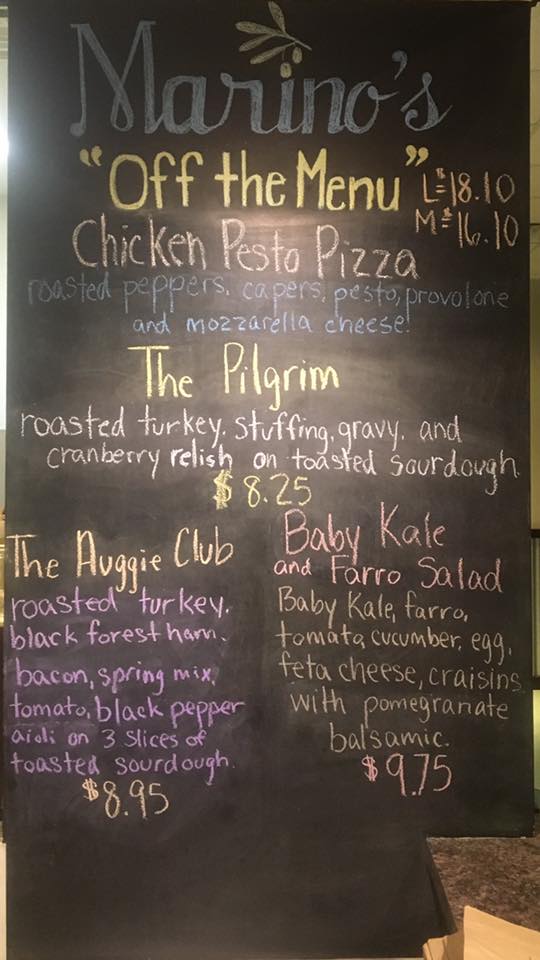 Marino's
"Off the Menu"
L=$18.10
M=$16.10
Chicken Pesto Pizza
roasted peppers, capers, pesto, provolone
and mozzarella cheese!
The Pilgrim
roasted turkey, stuffing, gravy, and
cranberry relish on toasted sourdough
$8.25
The Auggie Club
roasted turkey,
black forest ham,
bacon, spring mix,
tomato, black pepper
aioli on 3 slices of
toasted sourdough.
$8.95
Baby Kale
and Farro Salad
Baby Kale, farro,
tomata cucumber, egg,
feta cheese, craisins
with pomegranate
balsamic.
$9.75